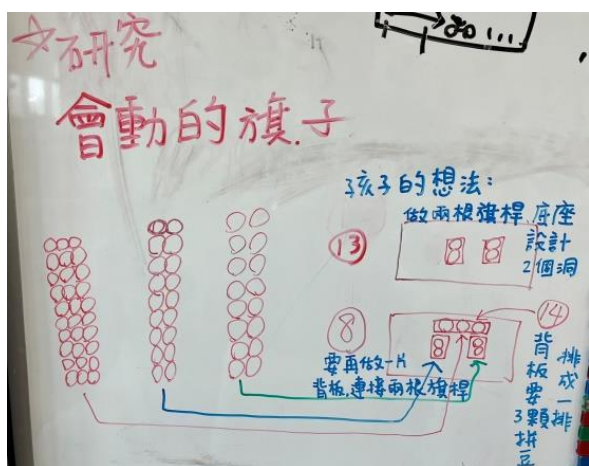 ☆研究
會動的旗子
孩子的想法:
做兩根旗桿,底座
設計
2個洞
13
8 8
14
8
8 8
要再做一片
背板,連接兩根旗桿
背板要3顆拼豆
排成一排